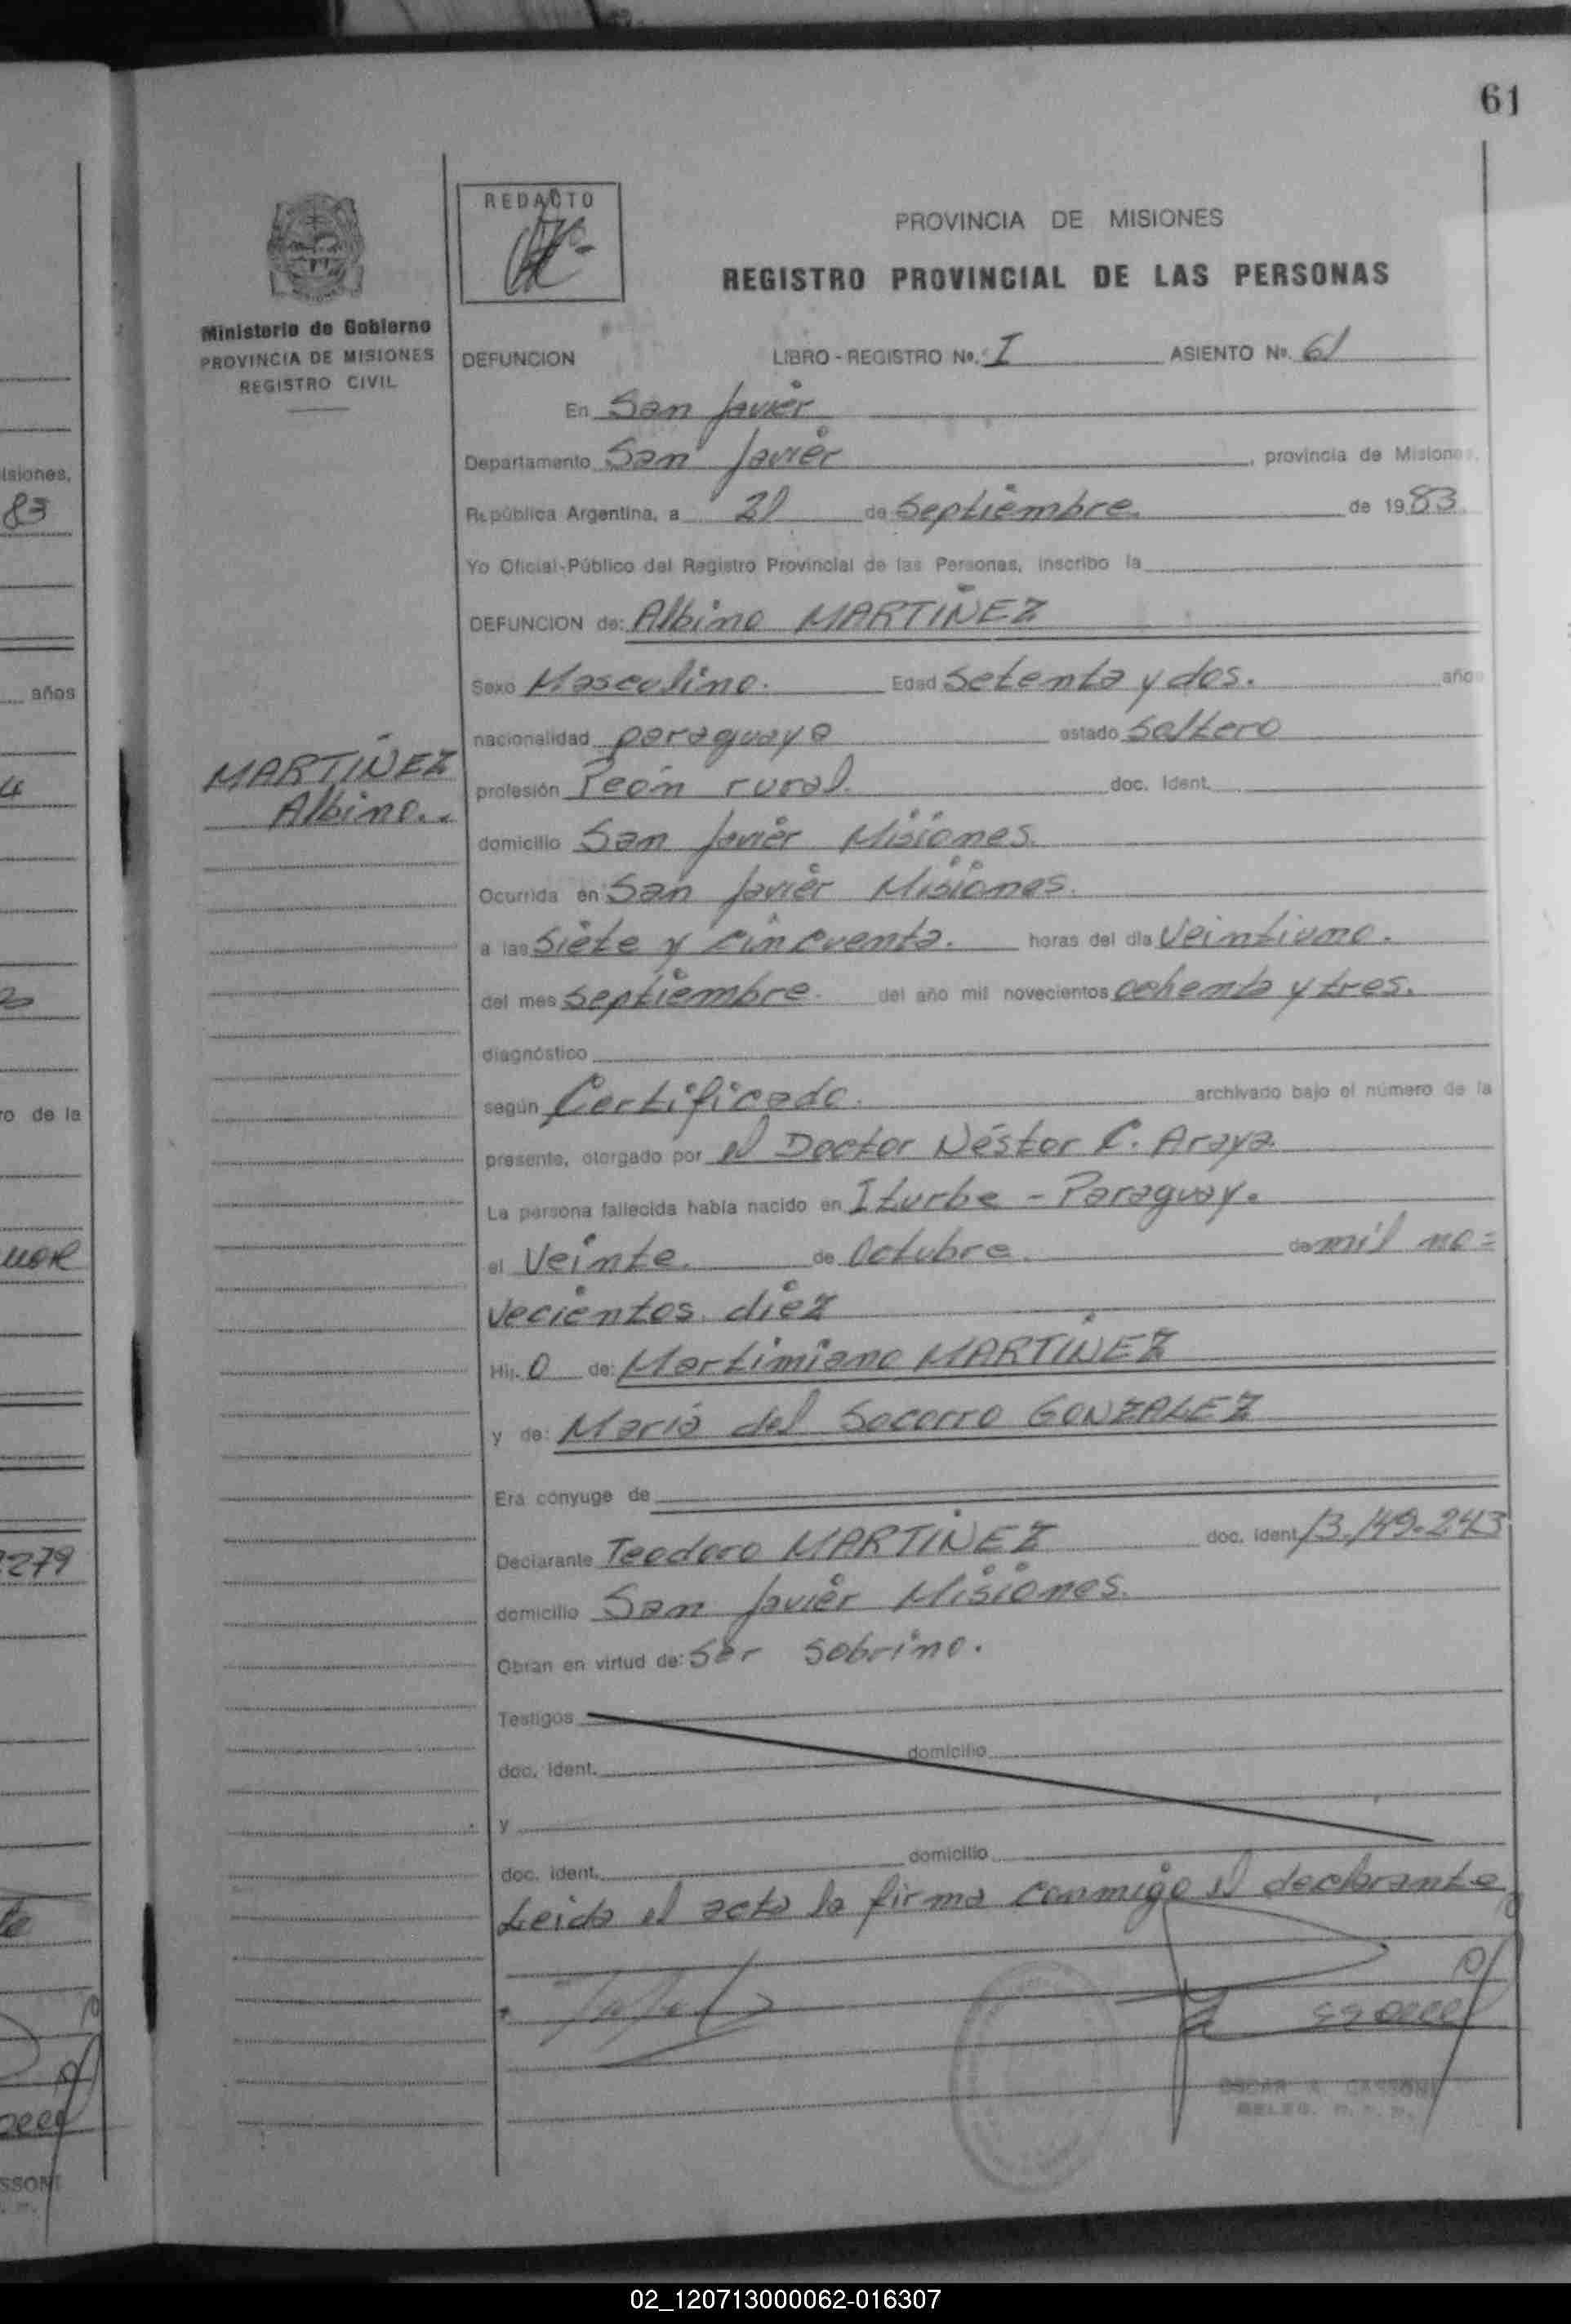 61
REDACTO
PROVINCIA DE MISIONES
REGISTRO PROVINCIAL DE LAS PERSONAS
Ministerio de Gobierno
PROVINCIA DE MISIONES
REGISTRO CIVIL
DEFUNCION LIBRO - REGISTRO No. I ASIENTO No. 61
En San Javier
Departamento San Javier, provincia de Misiones,
República Argentina, a 21 de Septiembre. de 1983
Yo Oficial-Público del Registro Provincial de las Personas, inscribo la
DEFUNCION de: Albino MARTINEZ
Sexo Masculino. Edad Setenta y dos. años
nacionalidad paraguaya estado Soltero
MARTINEZ
Albino..
profesión Peón rural. doc. ident.
domicilio San Javier Misiones.
Ocurrida en San Javier Misiones.
a las Siete y Cincuenta. horas del día Veintiuno.
del mes Septiembre. del año mil novecientos ochenta y tres.
diagnóstico
según Certificado. archivado bajo el número de la
presente, otorgado por el Doctor Néstor C. Araya.
La persona fallecida había nacido en Iturbe - Paraguay.
el Veinte. de Octubre. de mil no=
vecientos diez
Hij. O de: Martimiano MARTINEZ
y de: María del Socorro GONZALEZ
Era cónyuge de
Declarante Teodoro MARTINEZ doc. ident. 13.149.243
domicilio San Javier Misiones.
Obran en virtud de: Ser Sobrino.
Testigos
doc. ident. domicilio
y
doc. ident. domicilio
Leida el acta la firma conmigo el declarante
OSCAR A. CASSONI
DELEG. R. P. P.
isiones,
83
años
4
ro de la
279
SSONI
02_120713000062-016307